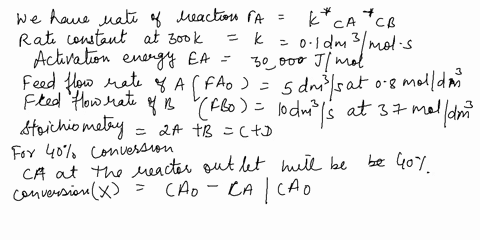 We have rate of reaction rA = K*CA*CB
Rate constant at 300K = K = 0.1 dm³/mol·s
Activation energy EA = 30,000 J/mol
Feed flow rate of A (FAo) = 5 dm³/s at 0.8 mol/dm³
Feed flow rate of B (FBo) = 10 dm³/s at 37 mol/dm³
Stoichiometry = 2A + B = C + D
For 40% conversion
CA at the reactor outlet will be be 40%.
Conversion (X) = CAo - CA | CAo